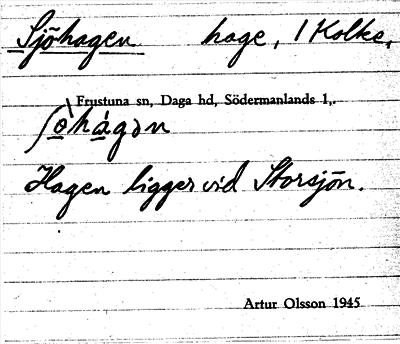 Sjöhagen hage, 1 Kolke,
Frustuna sn, Daga hd, Södermanlands l,.
Hagen ligger vid Storsjön.
Artur Olsson 1945